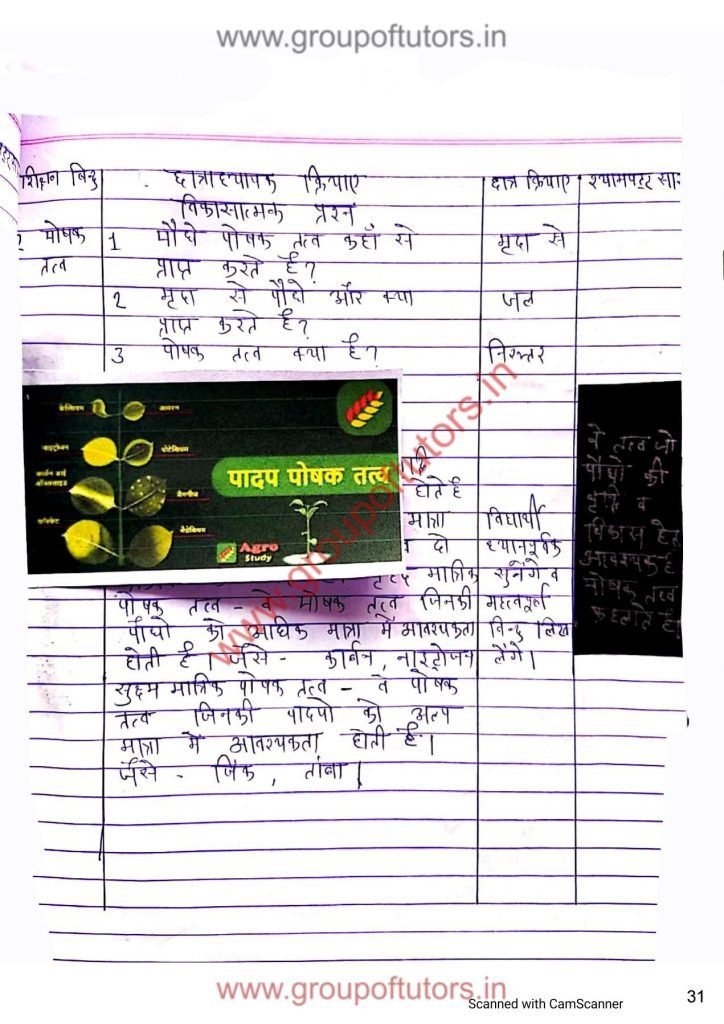 www.groupoftutors.in
शिक्षण बिन्दु छात्राध्यापक क्रियाए छात्र क्रियाए श्यामपट्ट सा
विकासात्मक प्रश्न
पोषक 1 पौधे पोषक तत्व कहाँ से मृदा से
तत्व प्राप्त करते है?
2 मृदा से पौधे और क्या जल
प्राप्त करते है?
3 पोषक तत्व क्या है? निरुत्तर
कैल्शियम आयरन
नाइट्रोजन पोटेशियम
कार्बन डाई
ऑक्साइड मैगनीज
फॉस्फेट मैग्नेशियम
पादप पोषक तत्व
Agro
Study
होते है
मात्रा विद्यार्थी
दो ध्यानपूर्वक
मात्रिक सुनेंगे व
पोषक तत्व - वे पोषक तत्व जिनकी महत्वपूर्ण
पौधो को अधिक मात्रा में आवश्यकता बिन्दु लिख
होती है। जैसे - कार्बन, नाइट्रोजन लेंगे।
सुक्ष्म मात्रिक पोषक तत्व - वे पोषक
तत्व जिनकी पादपो को अल्प
मात्रा में आवश्यकता होती है।
जैसे - जिंक, तांबा।
वे तत्व जो
पौधो की
वृद्धि व
विकास हेतु
आवश्यक है
पोषक तत्व
कहलाते है।
www.groupoftutors.in
www.groupoftutors.in
Scanned with CamScanner
31